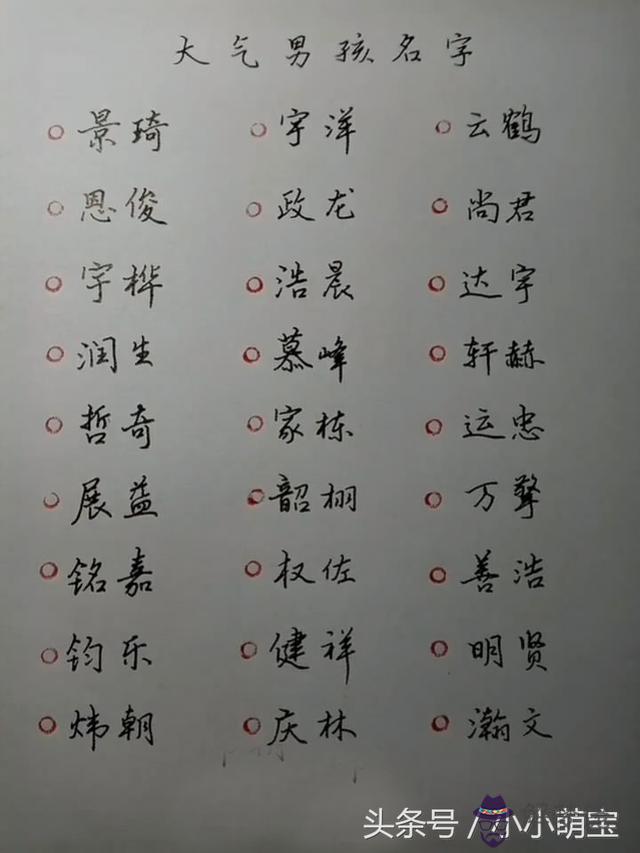 大气男孩名字
景琦 宇洋 云鹤
恩俊 政龙 尚君
宇桦 浩晨 达宇
润生 慕峰 轩赫
哲奇 家栋 运忠
展益 韶栩 万擎
铭嘉 权佐 善浩
钧乐 健祥 明贤
炜朝 庆林 瀚文
头条号/小小萌宝